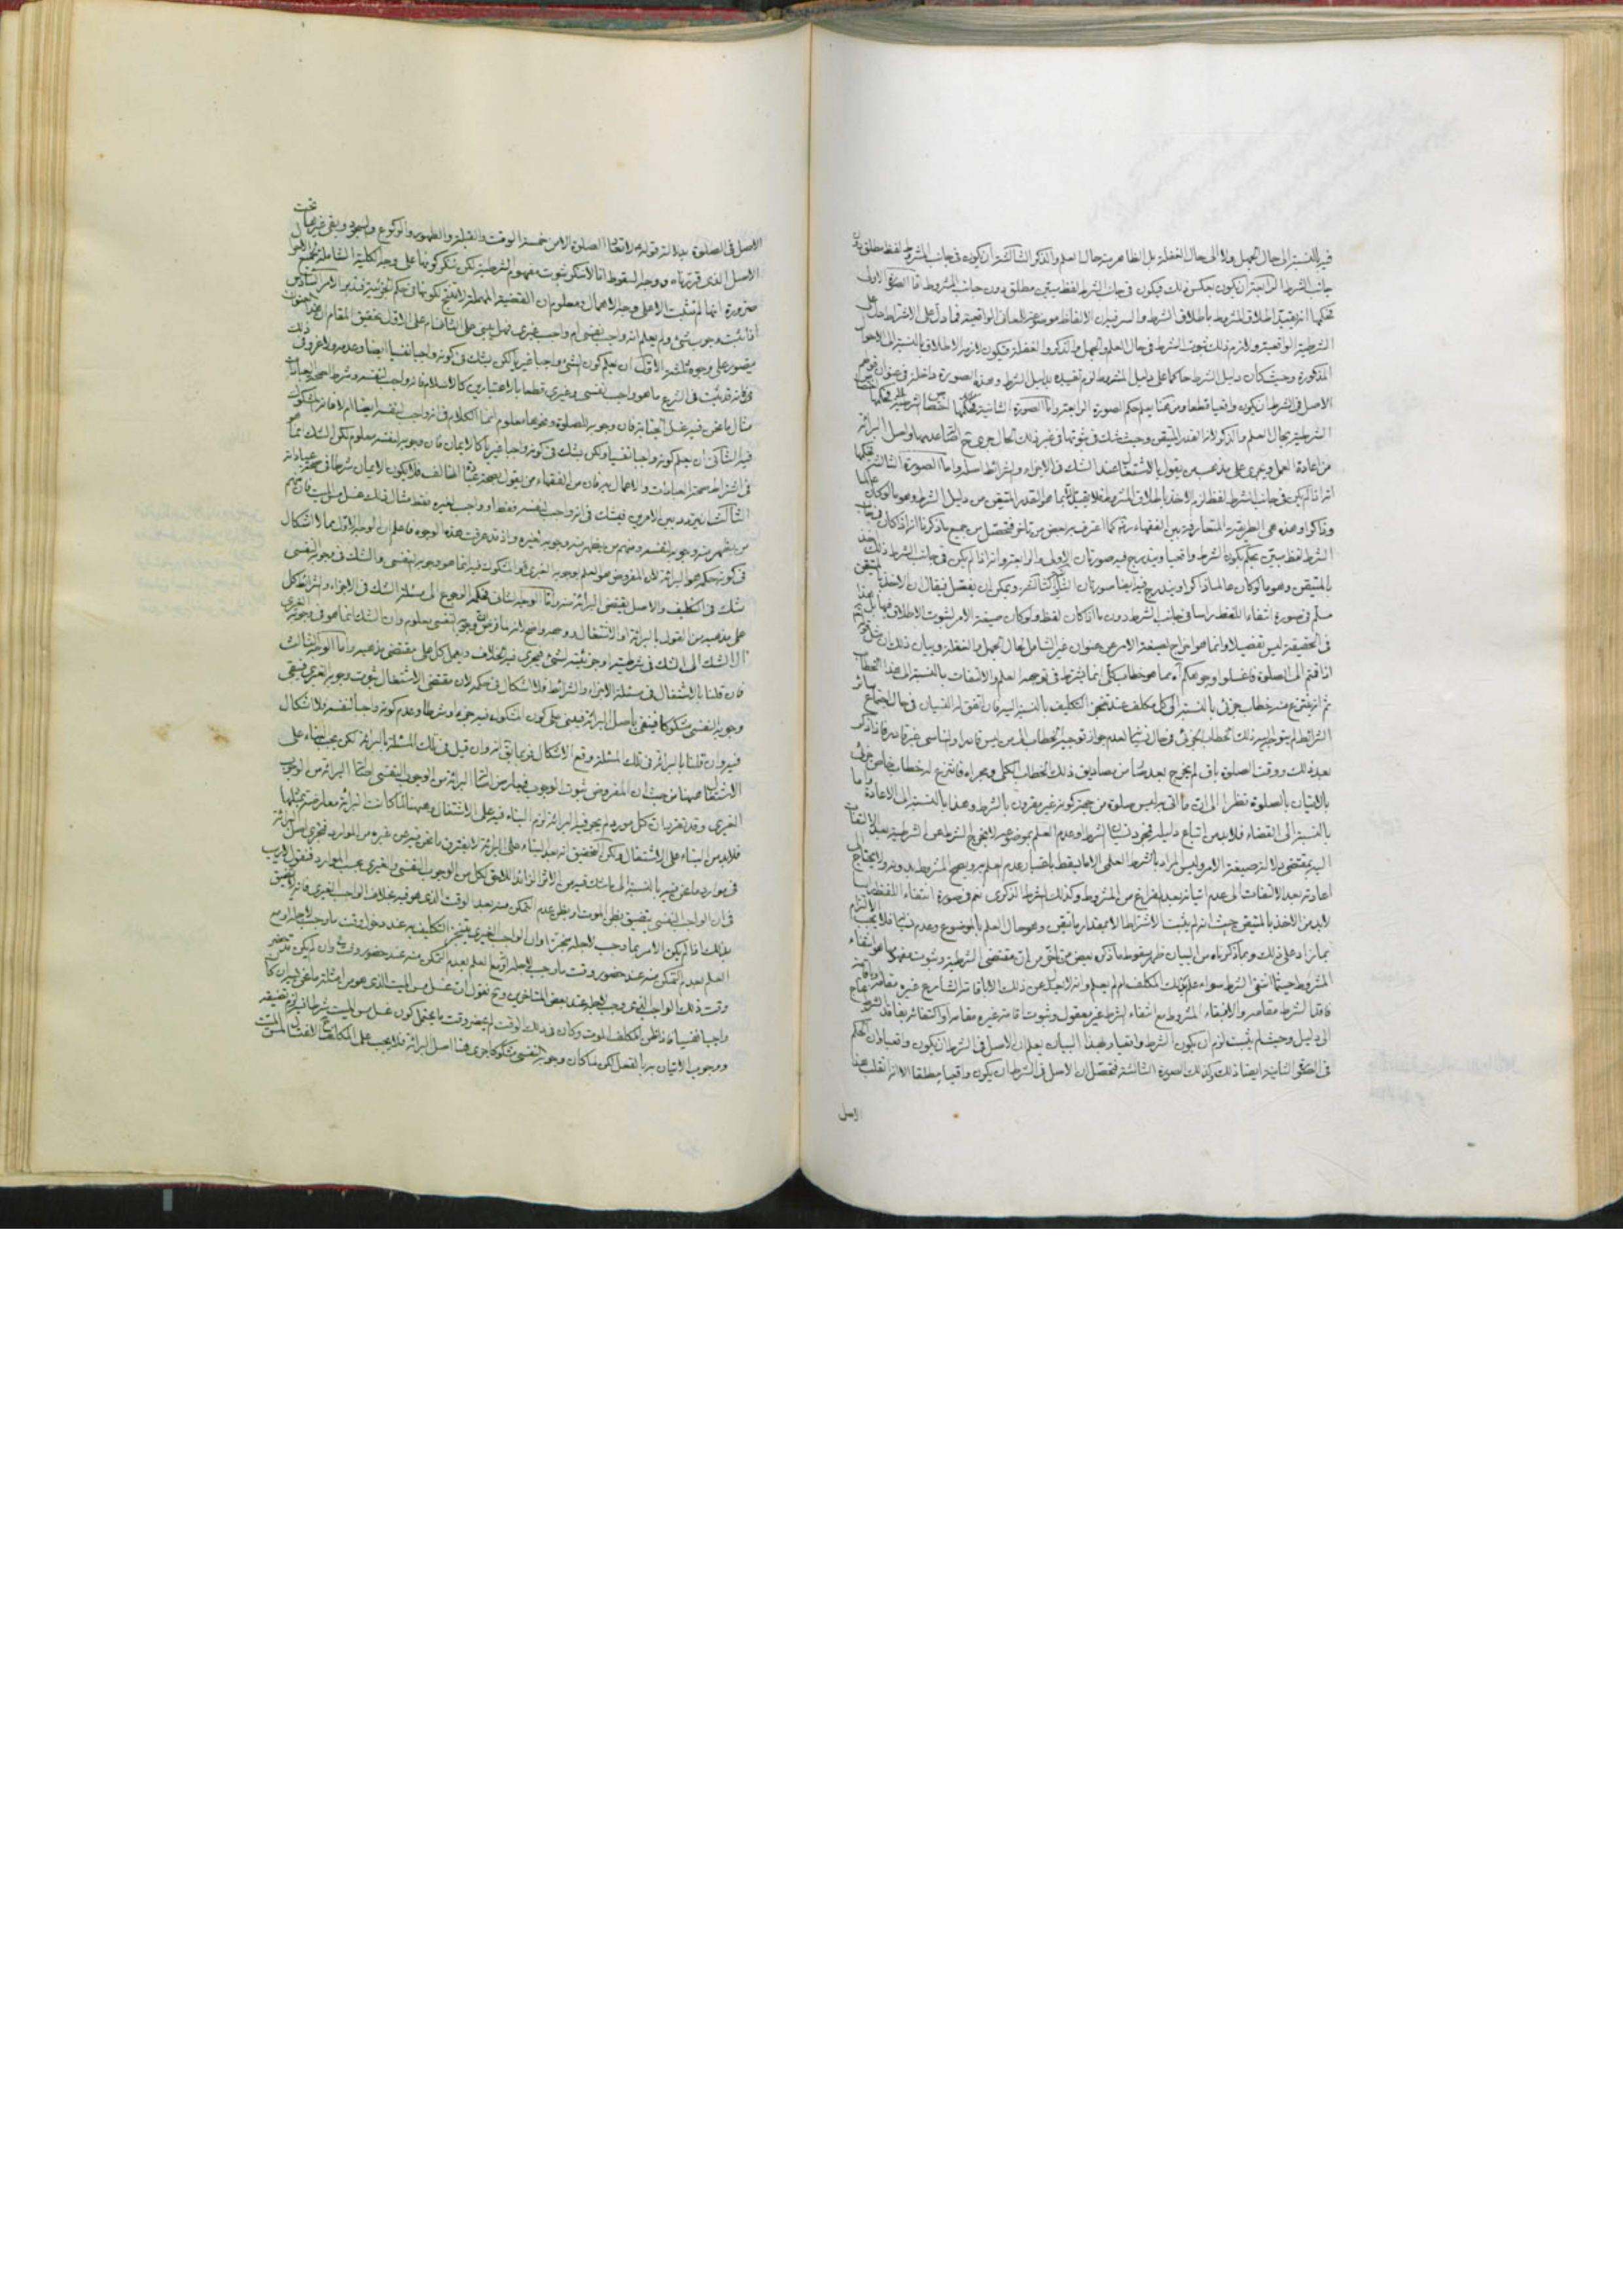 فيه بالنسبة الى حال الجهل ولا الى حال الغفلة بل الظاهر منه حال العلم والذكر الثالثة ان يكون فى جانب الشرط لفظ مطلق دون
جانب الشرط الرابعة ان يكون بعكس ذلك فيكون فى جانب الشرط لفظ مبين مطلق دون جانب المشروط اما الصورة الاولى
فحكمها انه يقيد اطلاق المشروط باطلاق الشرط والسر فيه ان الالفاظ موضوعة للمعانى الواقعية فما دل على الاشتراط دل على
الشرطية الواقعية ولازم ذلك ثبوت الشرط فى حال العلم والجهل والذكر والغفلة فيكون لازمه الاطلاق بالنسبة الى الاحوال
المذكورة وحيث كان دليل الشرط حاكما على دليل المشروط لزم تقييده بدليل الشرط وهذه الصورة داخلة فى عنوان قولهم
الاصل فى الشرط ان يكون واقعيا قطعا ومن هنا يعلم حكم الصورة الرابعة واما الصورة الثانية فحكمها اختصاص الشرطية
الشرطية بحال العلم والذكر لانه القدر المتيقن وحيث شك فى ثبوتها فى غير ذلك الحال جرى
من اعادة العمل ويجرى على مذهب من يقول بالاشتغال عند الشك فى الاجزاء والشرائط اصله واما الصورة الثالثة فحكمها
انه اذا لم يكن فى جانب الشرط لفظ لزم الاخذ باطلاق المشروط فلا يقيد الا بما هو القدر المتيقن من دليل الشرط وهو ما لو كان عالما
وذاكرا وهذه هى الطريقة المتعارفة بين الفقهاء كما اعترف به بعض من تاخر فتحصل من جميع ما ذكرنا انه اذا كان فى جانب
الشرط لفظ مبين يحكم بكون الشرط واقعيا ويندرج فيه صورتان الاولى والرابعة وانه اذا لم يكن فى جانب الشرط ذلك اخذ
بالمتيقن وهو ما لو كان عالما ذاكرا ويندرج فيه ايضا صورتان الثانية والثالثة ويمكن ان يفصل فيقال ان الاخذ بالمتيقن
مسلم فى صورة انتفاء اللفظ راسا فى جانب الشرط دون ما اذا كان لفظ ولو كان صيغة الامر لثبوت الاطلاق فيها بل هذا
فى الحقيقة ليس تفصيلا وانما هو اخراج لصيغة الامر عن عنوان غير الشامل لحال الجهل والغفلة وبيان ذلك ان مثل قوله
اذا قمتم الى الصلوة فاغسلوا وجوهكم آه مما هو خطاب كلى انما يشترط فى توجهه العلم والالتفات بالنسبة الى هذا الخطاب
ثم انه ينتزع منه خطاب جزئى بالنسبة الى كل مكلف عند تنجز التكليف بالنسبة اليه فان اتفق له النسيان فى حال اجتماع سائر
الشرائط لم يتوجه اليه ذلك الخطاب الجزئى فى حال نسيانه لعدم جواز توجيه الخطاب الى من ليس قادرا والناسى غير قادر فاذا ذكر
بعد ذلك ووقت الصلوة باق لم يخرج بعد من مصاديق ذلك الخطاب الكلى ومجراه فانتزع له خطاب خاص جزئى
بالاتيان بالصلوة نظرا الى ان ما اتى به ليس صلوة من جهة كونه غير مقرون بالشرط وهذا بالنسبة الى الاعادة واما
بالنسبة الى القضاء فلابد من اتباع دليله فمجرد نسيان الشرط وعدم العلم بموضوعه لا يخرج الشرط عن الشرطية بعد الالتفات
اليه بمقتضى دلالة صيغة الامر وليس المراد بالشرط العلمى الا ما يسقط باعتبار عدم العلم به ويصح المشروط بدونه ولا يحتاج الى
اعادته بعد الالتفات الى عدم اتيانه بعد الفراغ من المشروط وكذلك الشرط الذكرى نعم فى صورة انتفاء اللفظ راسا
لابد من الاخذ بالمتيقن حيث انه لم يثبت الاشتراط الا بمقدار ما تيقن وهو حال العلم بالموضوع وعدم نسيانه فلا يجب الالتزام
بما زاد على ذلك ومما ذكرناه من البيان ظهر سقوط ما ذكره بعض من تاخر من ان مقتضى الشرطية وثبوت مفهومها هو انتفاء
المشروط حيثما انتفى الشرط سواء علم بذلك المكلف ام لم يعلم وانه لا يعدل عن ذلك الا باقامة الشارع غيره مقامه واقامة
فاقد الشرط مقامه والا فبقاء المشروط مع انتفاء الشرط غير معقول وثبوت اقامة غيره مقامه او اكتفائه بفاقد الشرط يحتاج
الى دليل وحيث لم يثبت لزم ان يكون الشرط واقعيا وبهذا البيان يعلم ان الاصل فى الشرط ان يكون واقعيا وان الحكم
فى الصورة الثانية ايضا ذلك وكذلك الصورة الثالثة فتحصل ان الاصل فى الشرط ان يكون واقعيا مطلقا الا انه انقلب هذا
الاصل
الاصل فى الصلوة بدلالة قوله لا تعاد الصلوة الا من خمسة الوقت والقبلة والطهور والركوع والسجود وبقى غيرها تحت
الاصل الذى قررناه ووجه السقوط انا لا ننكر ثبوت مفهوم الشرطية لكن ننكر كونها على وجه الكلية الشاملة لجميع الاحوال
ضرورة انها لم تثبت الا على وجه الاهمال ومعلوم ان القضية المهملة لا تنتج لكونها فى حكم الجزئية فتدبر الامر السادس
اذا ثبت وجوب شئ ولم يعلم انه واجب نفسى ام واجب غيرى فهل يبنى على الثانى ام على الاول تحقيق المقام ان هذا العنوان
يتصور على وجوه ثلثة الاول ان يعلم كون الشئ واجبا غيريا لكن يشك فى كونه واجبا نفسيا ايضا وعدمه ولا غرو فى ذلك
فانه قد ثبت فى الشرع ما هو واجب نفسى وغيرى قطعا باعتبارين كالاسلام فانه واجب لنفسه وشرط لصحة العبادات
مثال ما نحن فيه غسل الجنابة فان وجوبه للصلوة ونحوها معلوم انما الكلام فى انه واجب لنفسه ايضا ام لا فانه المشكوك
فيه الثانى ان يعلم كونه واجبا نفسيا ولكن يشك فى كونه واجبا غيريا كالايمان فان وجوبه لنفسه معلوم لكن الشك انما هو
فى اشتراط صحة العبادات والاعمال به فان من الفقهاء من يقول بصحة عبادة المخالف فلا يكون الايمان شرطا فى صحة عباداته
الثالث ان يتردد بين الامرين فيشك فى انه واجب لنفسه فقط او واجب لغيره فقط مثال ذلك غسل مس الميت فان منهم
من يظهر منه وجوبه لنفسه ومنهم من يظهر منه وجوبه لغيره واذ قد عرفت هذه الوجوه فاعلم ان الوجه الاول مما لا اشكال
فى كون حكمه هو البرائة لان المفروض هو العلم بوجوبه الغيرى والمشكوك فيه انما هو وجوبه النفسى والشك فى وجوبه النفسى
شك فى التكليف والاصل يقتضى البرائة منه واما الوجه الثانى فحكمه الرجوع الى مسئلة الشك فى الاجزاء والشرائط كل
على مذهبه من القول بالبرائة او الاشتغال ووجهه واضح لانه ما فرض وجوبه النفسى معلوم وان الشك انما هو فى وجوبه الغيرى
آل الشك الى الشك فى شرطيته او جزئيته لشئ فيجرى فيه الخلاف ويعمل كل على مقتضى مذهبه واما الوجه الثالث
فان قلنا بالاشتغال فى مسئلة الاجزاء والشرائط فلا اشكال فى حكمه لان مقتضى الاشتغال ثبوت وجوبه الغيرى فيبقى
وجوبه النفسى مشكوكا فينفى باصل البرائة فيبنى على كون المشكوك فيه جزء او شرطا وعدم كونه واجبا لنفسه ولا اشكال
فيه وان قلنا بالبرائة فى تلك المسئلة وقع الاشكال فربما يق انه وان قيل فى تلك المسئلة بالبرائة لكن يجب البناء على
الاشتغال هيهنا من حيث ان المفروض ثبوت الوجوب فيعارض اصالة البرائة من الوجوب النفسى اصالة البرائة من الوجوب
الغيرى وقد تقرر ان كل مورد لم يجر فيه البرائة لزم البناء فيه على الاشتغال وهيهنا لما كانت البرائة معارضة بمثلها
فلابد من البناء على الاشتغال ولكن التحقيق انه بعد البناء على البرائة لا يفترق ما نحن فيه عن غيره من الموارد فتجرى اصل البرائة
فى موارد ما نحن فيه بالنسبة الى ما شك فيه من الاثر الزائد اللاحق بكل من الوجوب النفسى والغيرى بحسب الموارد فنقول لا ريب
فى ان الواجب النفسى يتضيق بظن الموت او بظن عدم التمكن منه بعد الوقت الذى هو فيه بخلاف الواجب الغيرى فانه لا يتضيق
بذلك فاذا لم يكن الامر بما وجب لاجله منجزا وان الواجب الغيرى يتنجز التكليف به عند دخول وقت ما وجب لاجله او مع
العلم بعدم التمكن منه عند حضور وقت ما وجب لاجله او مع العلم بعدم التمكن منه عند حضور وقته وان لم يكن قد حضر
وقت ذلك الواجب الذى وجب لاجله عند بعض المتاخرين وح نقول ان غسل مس الميت الذى هو من امثلة ما نحن فيه ان كان
واجبا نفسيا فاذا ظن المكلف الموت وكان فى ذلك الوقت لم يحضر وقت ما يحتمل كون غسل مس الميت شرطا فيه لزم تضيقه
ووجوب الاتيان به بالفعل لكن لما كان وجوبه النفسى مشكوكا جرى فيه اصل البرائة فلا يجب على المكلف ح الاغتسال لمس الميت